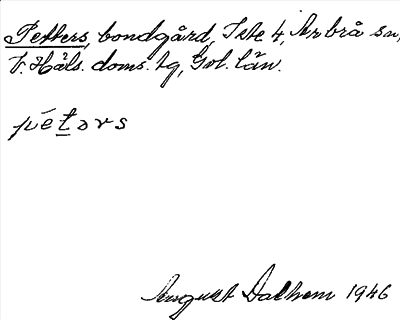 Petters, bondgård, Iste 4, Arbrå sn,
V. Häls. doms. tg, Gvl. län.
pétərs
August Dalhem 1946